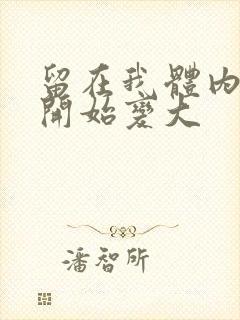 留在我體內
開始變大
潘智所